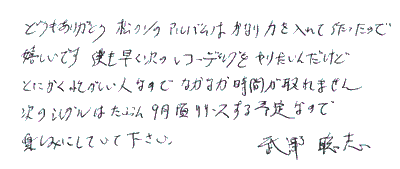 どうもありがとう 松クリのアルバムは かなり力を入れて作ったので
嬉しいです 僕も早く次のレコーディングを やりたいんだけど
とにかく忙しい人なので なかなか時間が取れません
次のシングルはたぶん 9月頃リリースする予定なので
楽しみにしていて下さい。
武野 聡志